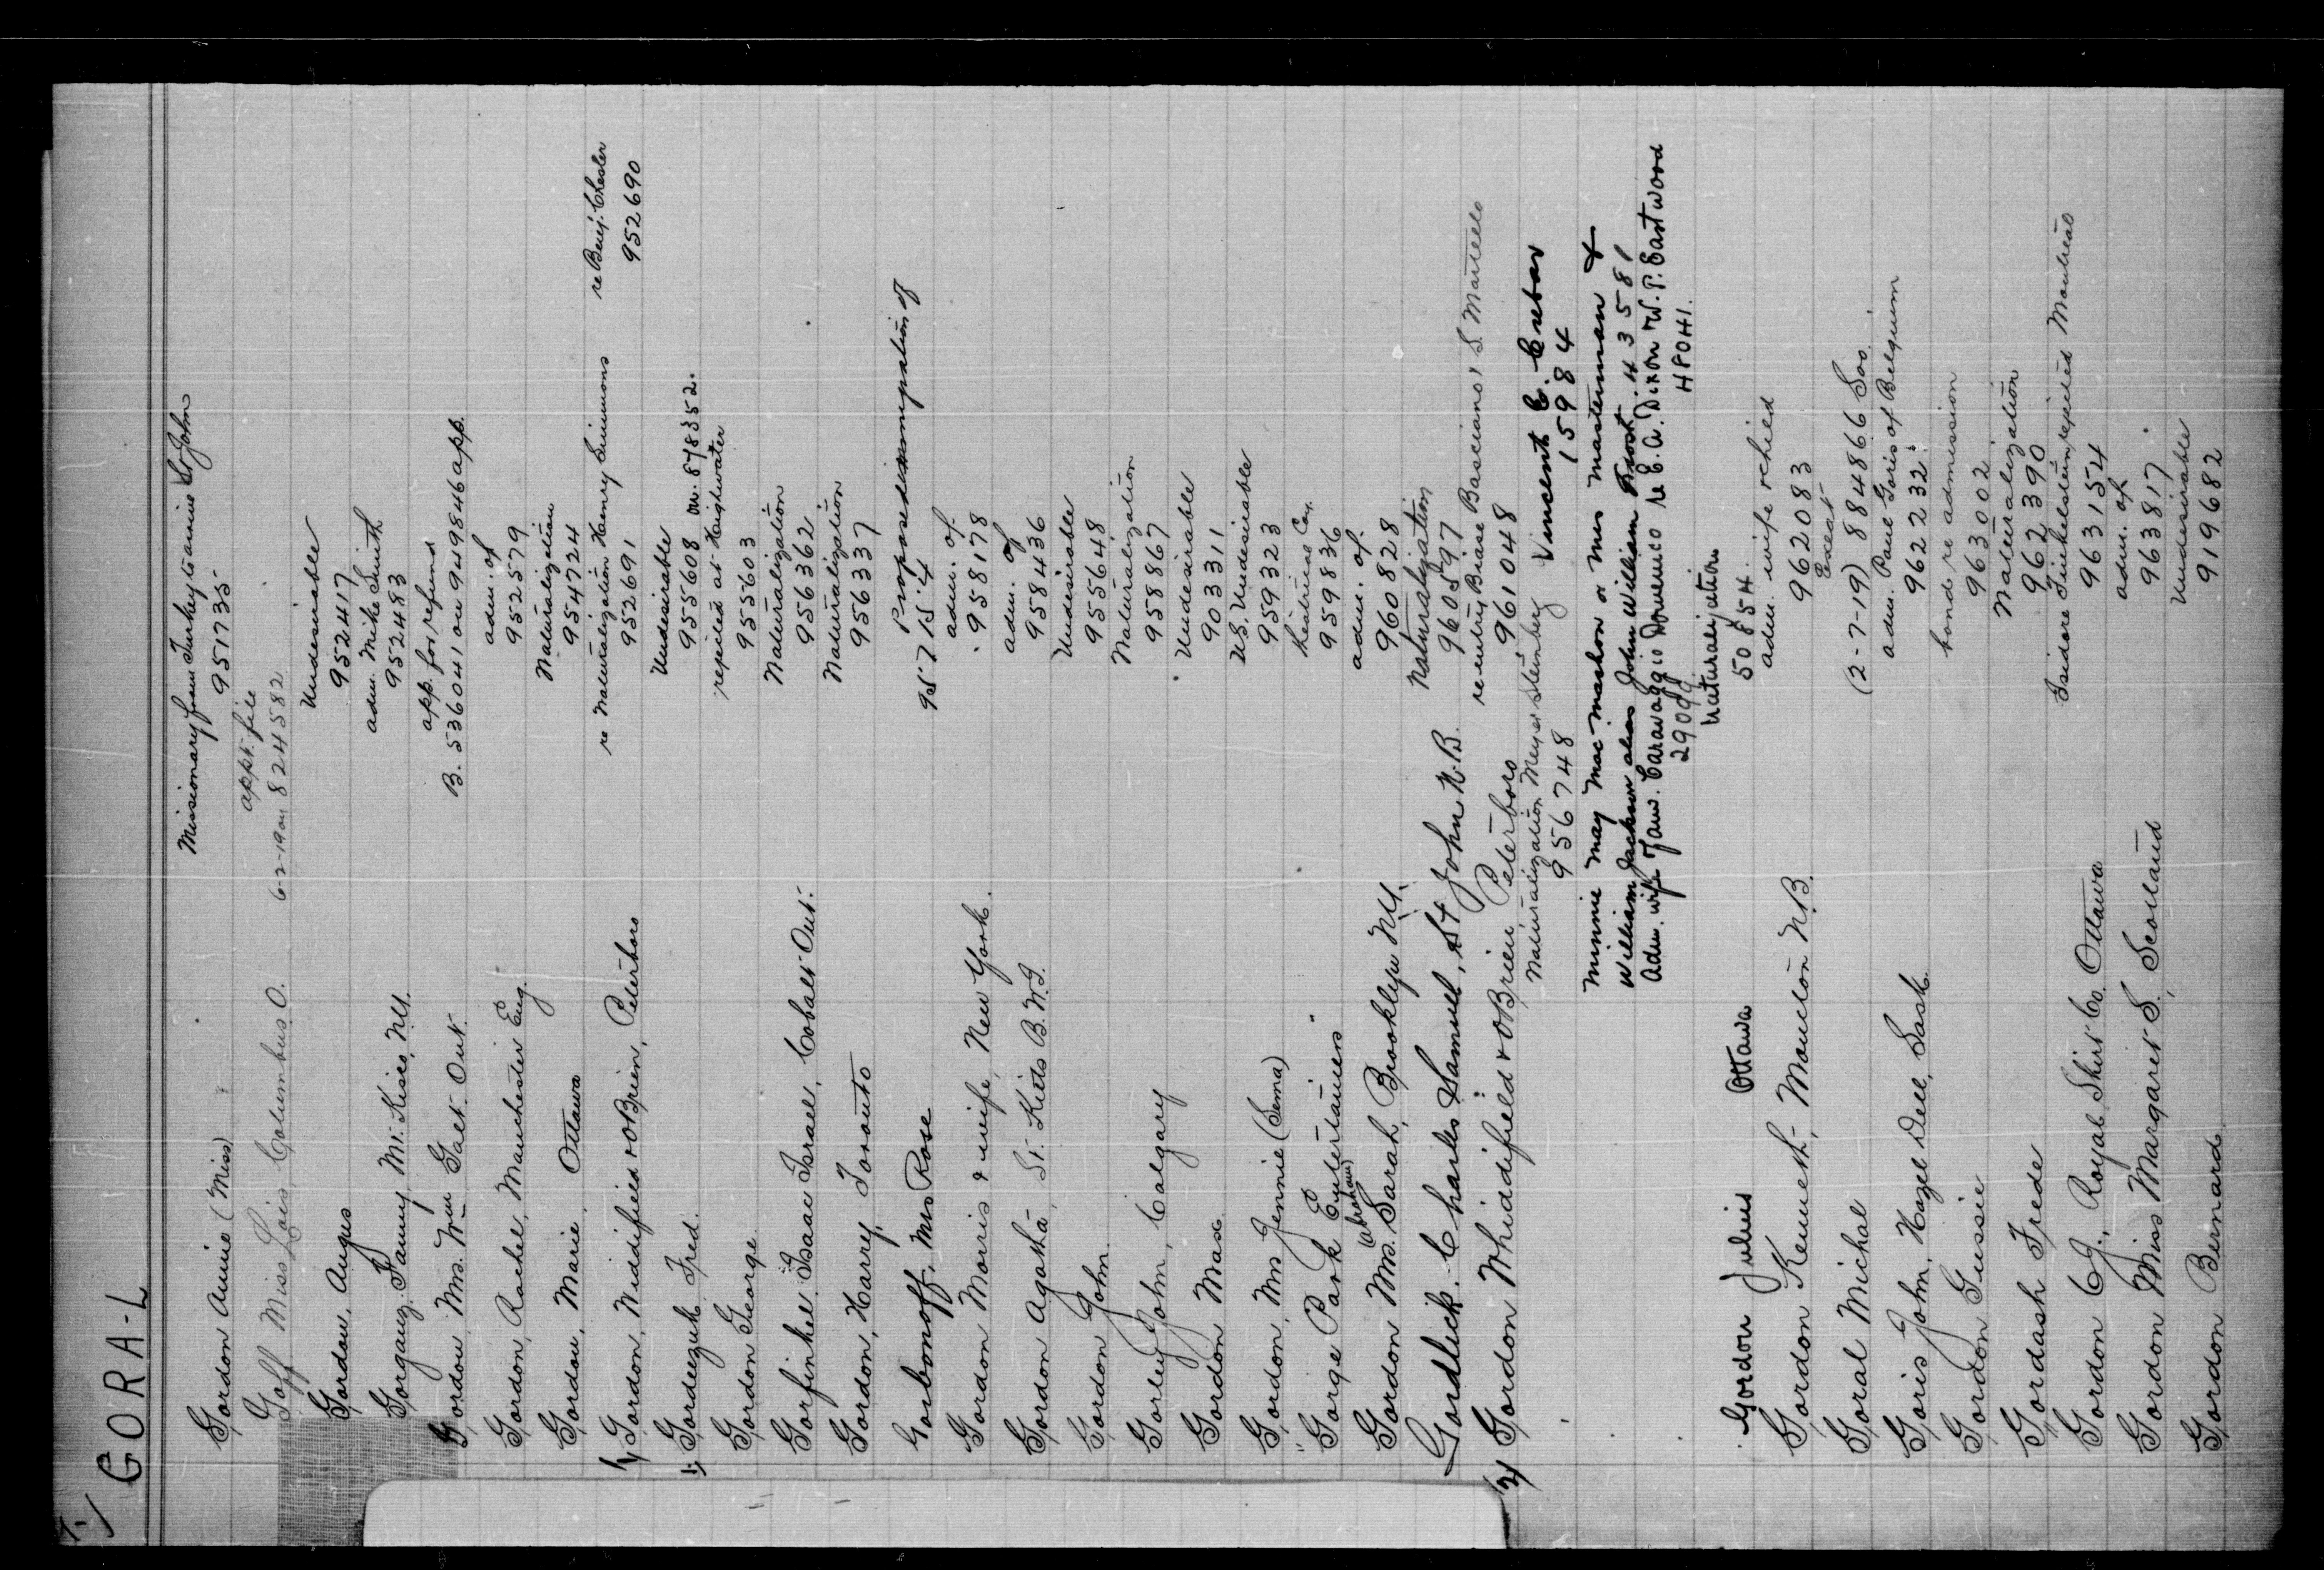 GORA-L
Gordon Annie (Miss) Missionary from Turkey to arrive St John
951735
Goff Miss Lois, Columbus O. appt. file
6-2-19 on 824582
Gordon, Angus Undesirable
952417
Gorgany, Fanny, Mt. Kisco, N.Y. adm. Mike Smith
952483
Gordon, Mrs. Wm Galt. Ont. app. for refund
B. 536041 on 949846 app.
Gordon, Rachel, Manchester Eng. adm. of
952579
Gordon, Marie, Ottawa Naturalization
954724
1/ Gordon, Widdifield & O'Brien, Peterboro re Naturalization Henry Simmons re Benj. Chesler
952691 952690
1/ Gordezuk Fred. Undesirable
955608 on. 878352.
Gordon George rejected at Highwater
955603
Gorfinkel Isaac Israel, Cobalt Ont. Naturalization
956362
Gordon, Harry, Toronto Naturalization
956337
Gorbonoff, Mrs Rose Proposed immigration of
957154
Gordon Morris & wife, New York. adm. of.
958178
Gordon Agatha, St. Kitts B.W.I. adm. of
958436
Gordon John. Undesirable
955648
Gorley John, Calgary Naturalization
958867
Gordon Max Undesirable
903311
Gordon, Mrs Jennie (Sema) U.S. Undesirable
959323
"Gorge Park Entertainers" theatrical Co.
959836
Gordon Mrs. (Abraham) Sarah, Brooklyn N.Y. adm. of.
960828
Gordlick, Charles Samuel, St John N.B. Naturalization
960597
2/ Gordon Whiddifield & O'Brien Peterboro re-entry Biase Basciano, S. Martello
961048
Naturalization Meyer Steinberg Vincent C. Crebar
956748 15984
Minnie May MacMashon or Mrs Masterman &
William Jackson alias John William Frost. 43581
Adm. wife & fam. Caravaggio Domenico re E. A. Dixon W. P. Eastwood
29099 48041.
Gordon Julius Ottawa Naturalization
50854.
Gordon Kenneth, Moncton N.B. adm. wife & child
962083
Goral Michal Exeat
(2-7-19) 884866 Soo.
Goris John, Hazel Dell, Sask. adm. Paul Goris of Belgium
962232.
Gordon Gussie bond re admission
963002
Gordash Frede Naturalization
962390
Gordon C.J., Royal Shirt Co. Ottawa Isidore Finkelstein, rejected Montreal
963154
Gordon Miss Margaret S. Scotland adm. of
963817
Gordon Bernard Undesirable
919682